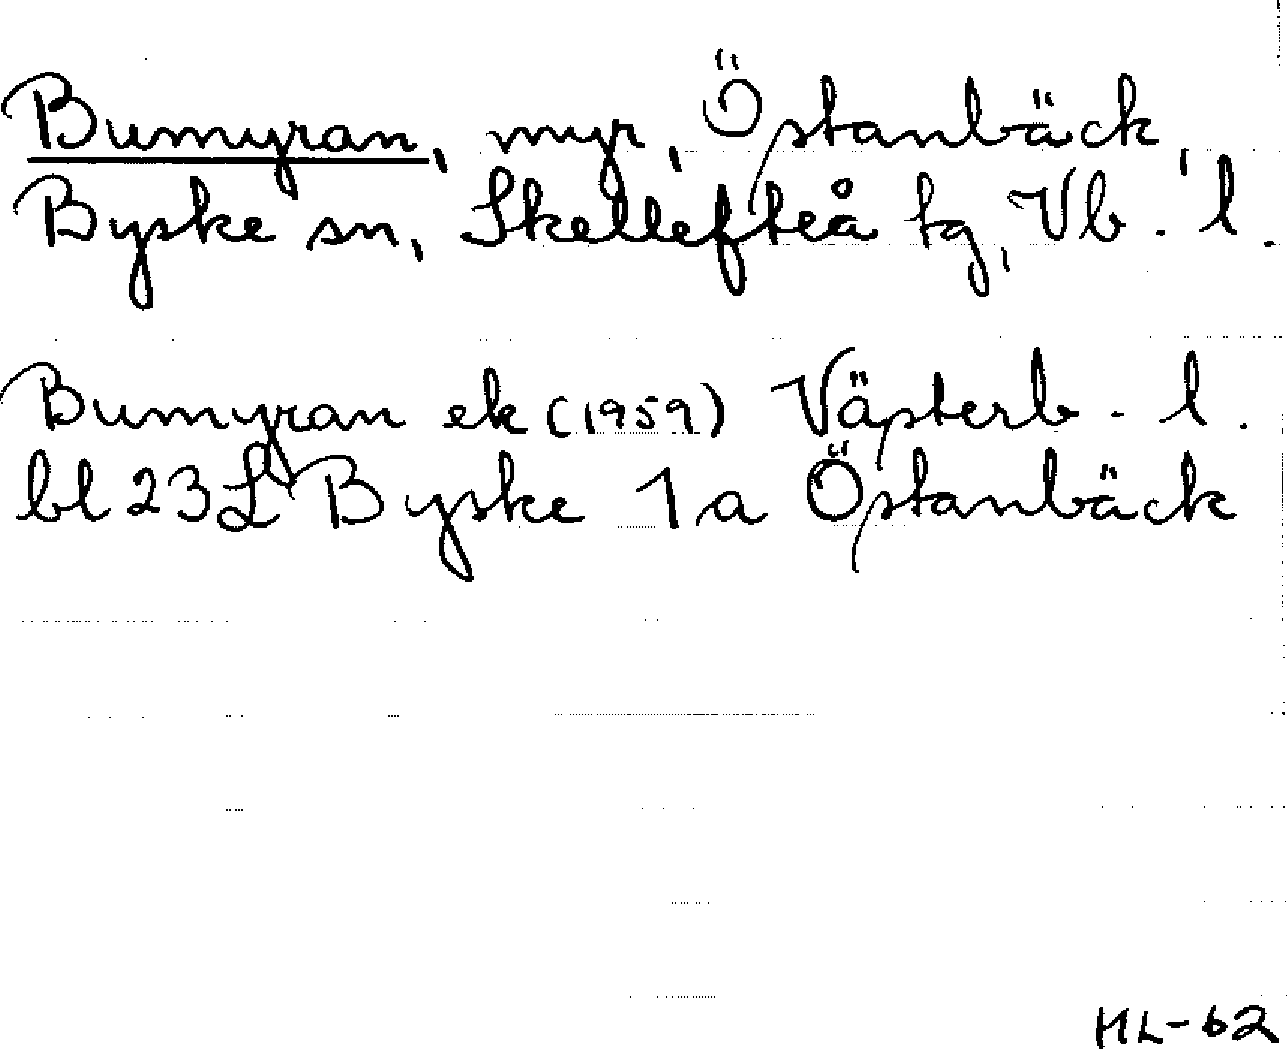 Bumyran, myr, Östanbäck,
Byske sn, Skellefteå tg, Vb. l.
Bumyran ek (1959) Västerb - l.
bl 23 L Byske 1 a Östanbäck
HL-62